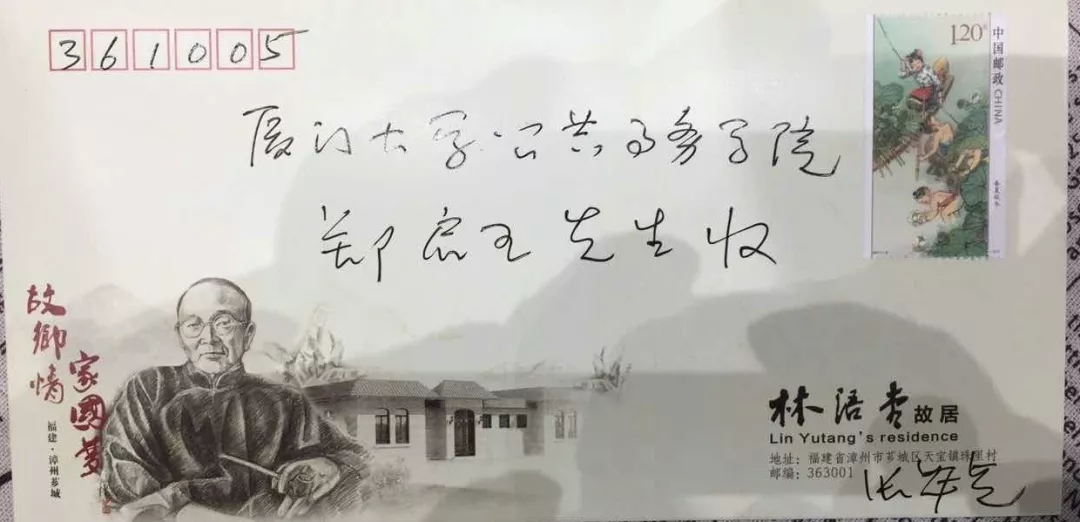 361005
厦门大学公共事务学院
郑启五先生收
1.20元
中国邮政 CHINA
春夏秋冬
故鄉情
家國夢
福建·漳州芗城
林语堂故居
Lin Yutang's residence
地址：福建省漳州市芗城区天宝镇珠里村
邮编：363001